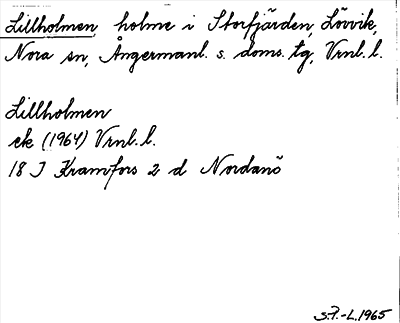 Lillholmen, holme i Storfjärden, Lövvik,
Nora sn, Ångermanl. s. doms. tg, Vrnl. l.
Lillholmen
ek (1964) Vrnl. l.
18 I Kramfors 2 d Nordanö
S.F.-L. 1965